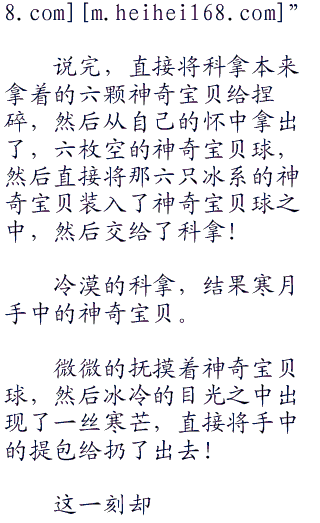 8.com][m.heihei168.com]”
说完，直接将科拿本来
拿着的六颗神奇宝贝给捏
碎，然后从自己的怀中拿出
了，六枚空的神奇宝贝球，
然后直接将那六只冰系的神
奇宝贝装入了神奇宝贝球之
中，然后交给了科拿！
冷漠的科拿，结果寒月
手中的神奇宝贝。
微微的抚摸着神奇宝贝
球，然后冰冷的目光之中出
现了一丝寒芒，直接将手中
的提包给扔了出去！
这一刻却